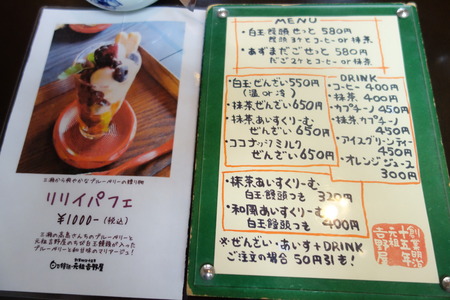 三瀬から爽やかなブルーベリーの贈り物
リリイパフェ
¥1000-(税込)
三瀬の高島さんちのブルーベリーと
元祖吉野屋のちび白玉饅頭が入った
ブルーベリーと和甘味のマリアージュ!
元祖吉野屋
MENU
・白玉饅頭せっと 580円
饅頭3ケとコーヒーor抹茶
・あずまだごせっと 580円
だご2ケとコーヒーor抹茶
・白玉ぜんざい 550円
(温or冷)
・抹茶ぜんざい 650円
・抹茶あいすくりーむ
ぜんざい 650円
・ココナッツミルク
ぜんざい 650円
DRINK
・コーヒー 400円
・抹茶 400円
・カプチーノ 450円
・抹茶カプチーノ
450円
・アイスグリーンティー
450円
・オレンジジュース
300円
・抹茶あいすくりーむ
白玉饅頭つき 320円
・和風あいすくりーむ
白玉饅頭つき 400円
※ぜんざい・あいす+DRINK
ご注文の場合50円引き!
創業明治
十五年
元祖
吉野屋